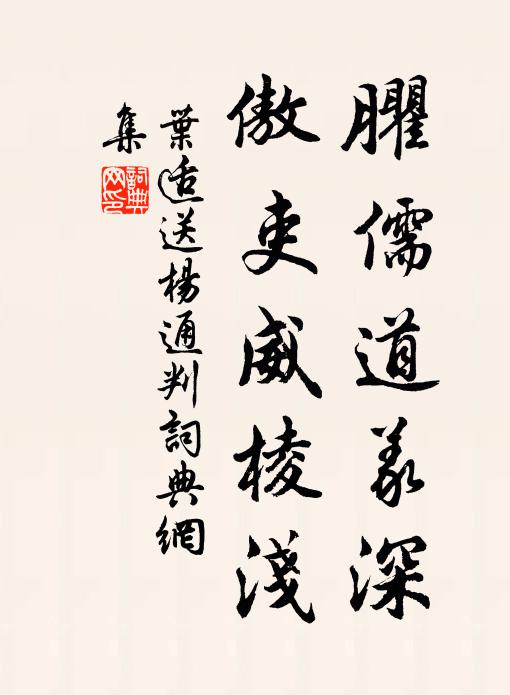 臞儒道义深
傲吏威棱淺
葉适送楊通判詞典網
集
詞典
网印